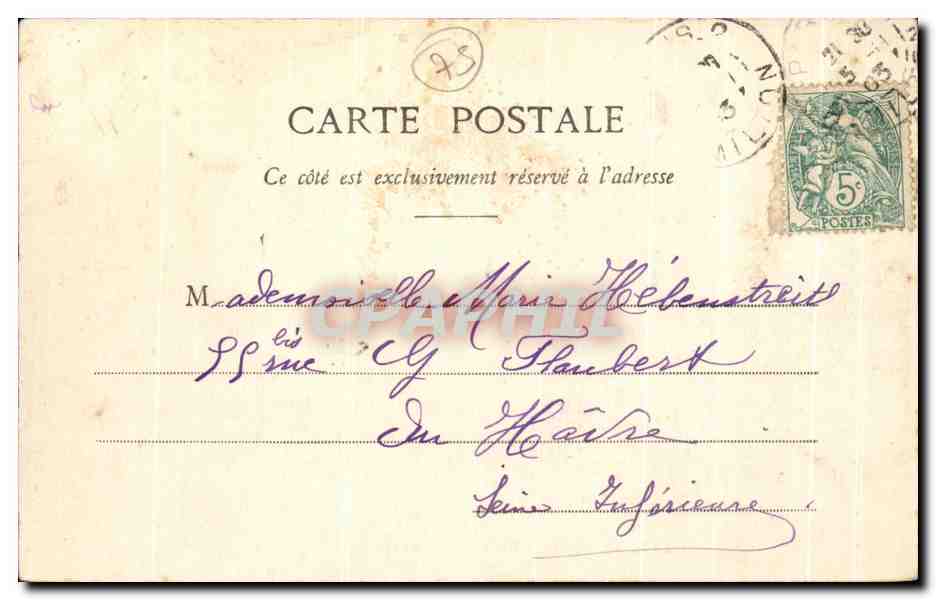 75
CARTE POSTALE
Ce côté est exclusivement réservé à l'adresse
5c
POSTES
Mademoiselle Marie Hébenstreit
55 bis rue G Flaubert
Au Hâvre
Seine Inférieure.
CPAPHIL